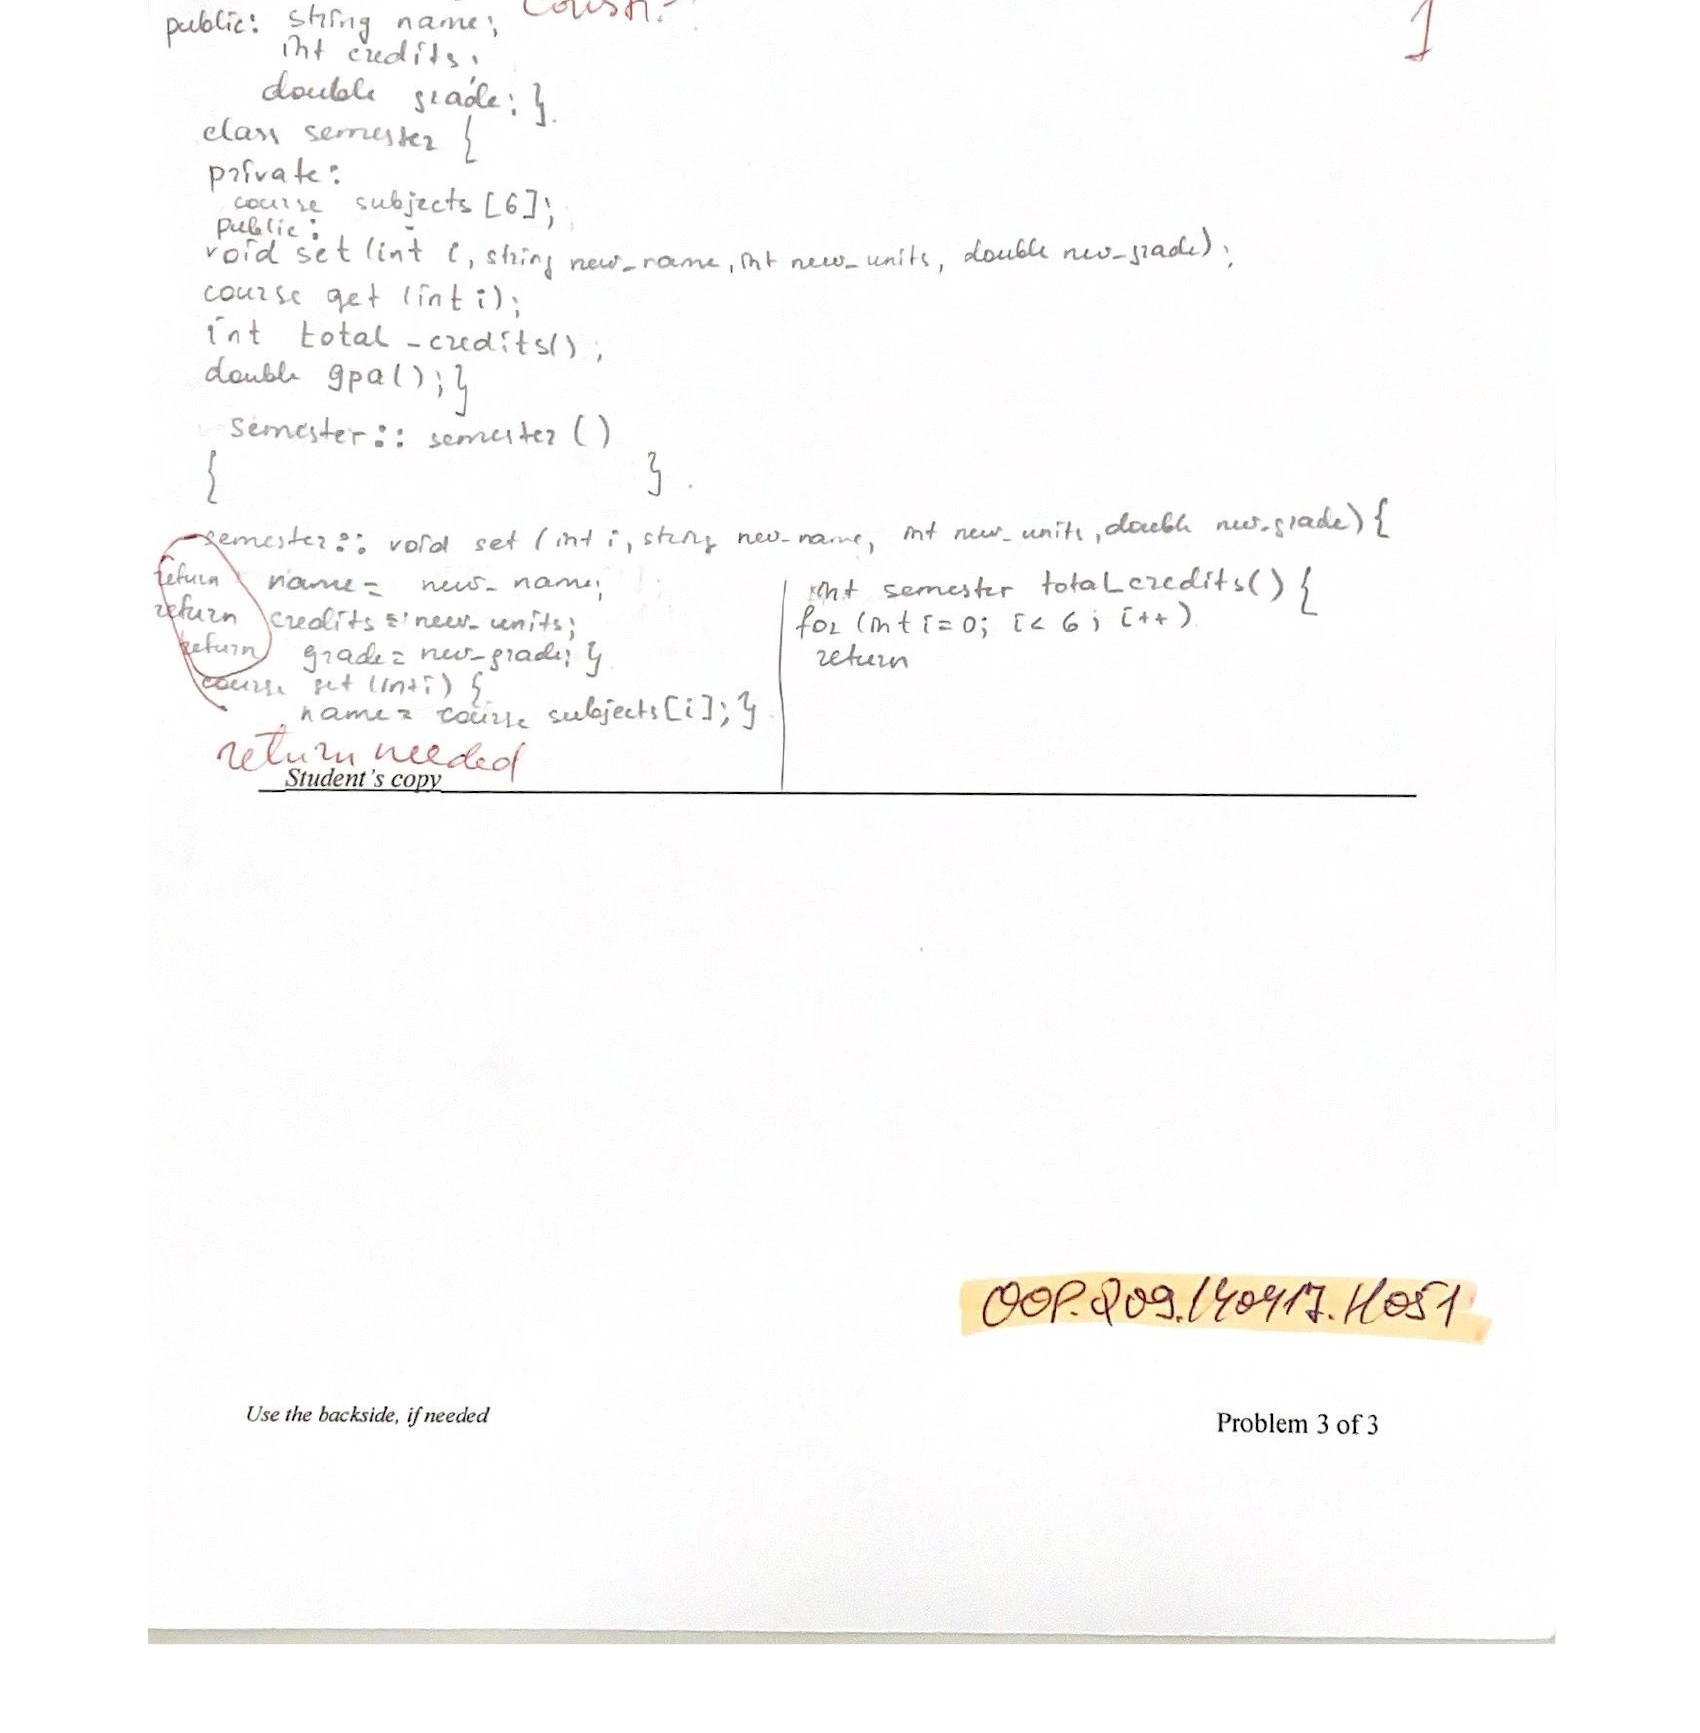 public: string name; Constr.
1
int credits;
double grade; }.
class semester {
private:
course subjects [6];
public:
void set (int i, string new_name, int new_units, double new_grade);
course get (int i);
int total_credits();
double gpa(); }
semester:: semester ()
{ }.
semester:: void set (int i, string new_name, int new_units, double new_grade) {
return name = new_name;
return credits = new_units;
return grade = new_grade; }
course set (int i) {
name = course subjects [i]; }
return needed
int semester total credits() {
for (int i=0; i<6; i++)
return
Student's copy
OOP.Q09.140417.H051
Use the backside, if needed
Problem 3 of 3